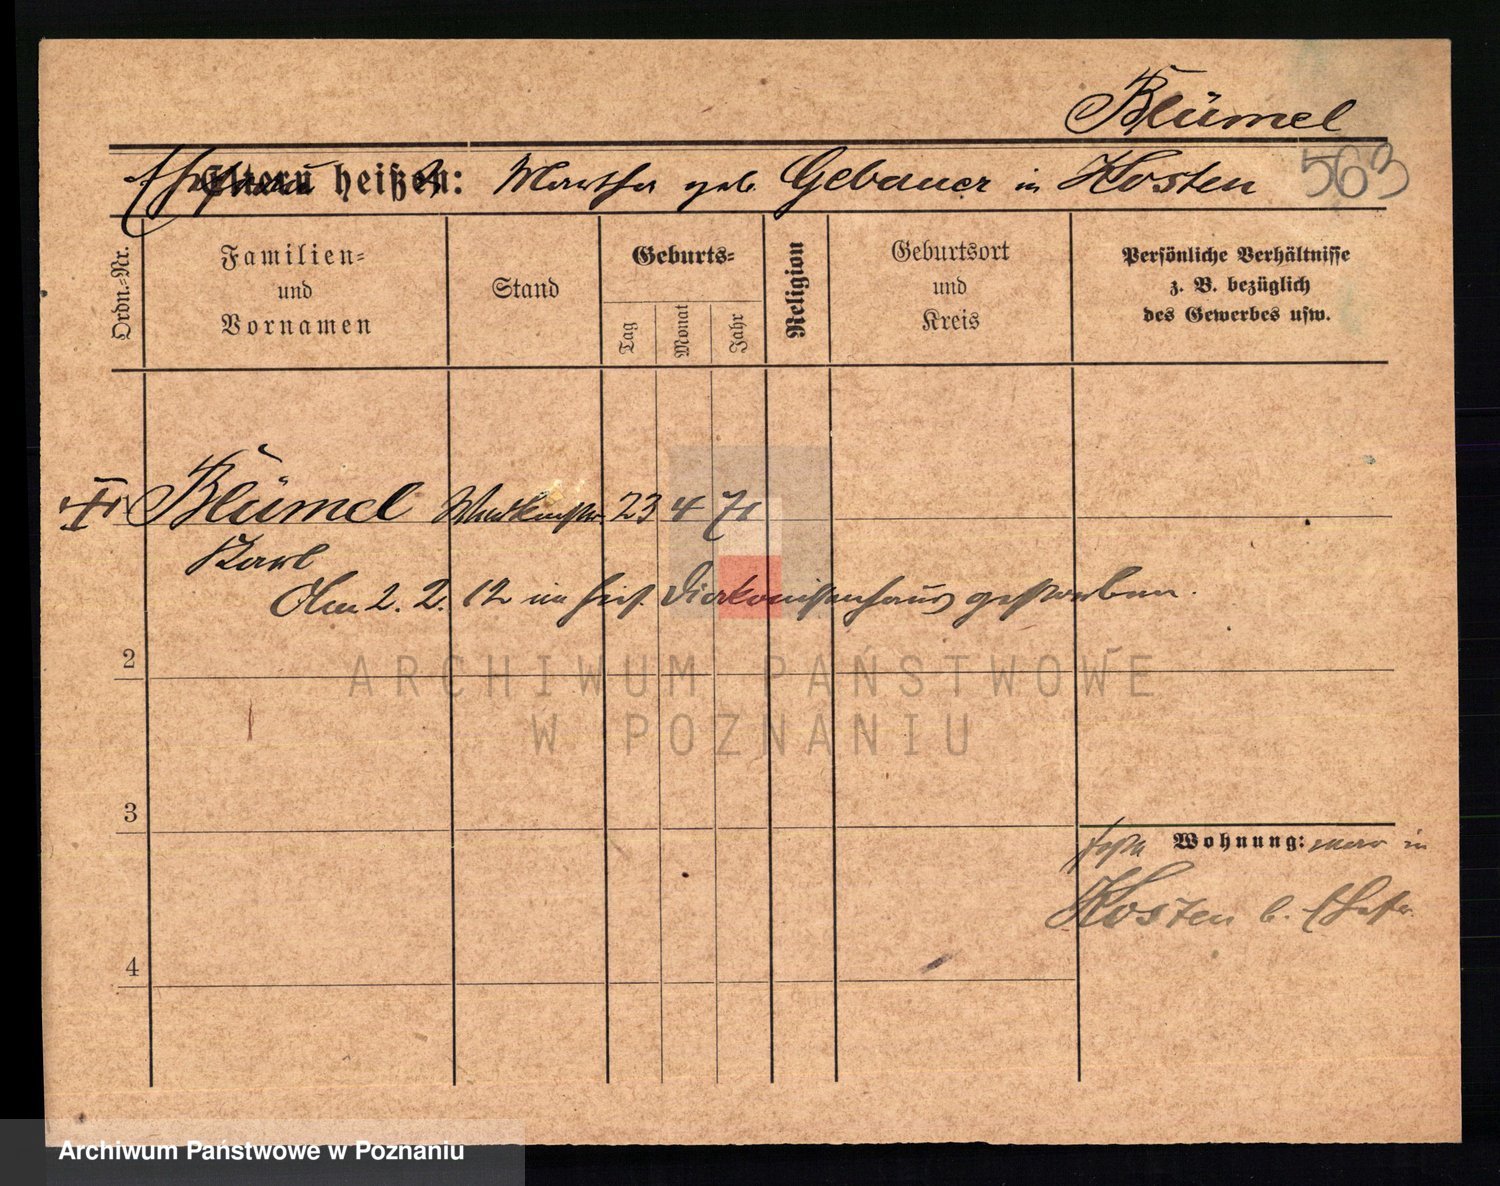 Blümel
563
Eltern heißen: Martha geb. Gebauer in Kosten
Ordn.-Nr.
Familien=
und
Vornamen
Stand
Geburts=
Tag
Monat
Jahr
Religion
Geburtsort
und
Kreis
Persönliche Verhältnisse
z. B. bezüglich
des Gewerbes usw.
Blümel 23 4 71
Karl
Am 2. 2. 12 im hies. Diakonissenhaus gestorben.
2
ARCHIWUM PAŃSTWOWE
W POZNANIU
3
Wohnung: war in
Kosten b.
4
Archiwum Państwowe w Poznaniu